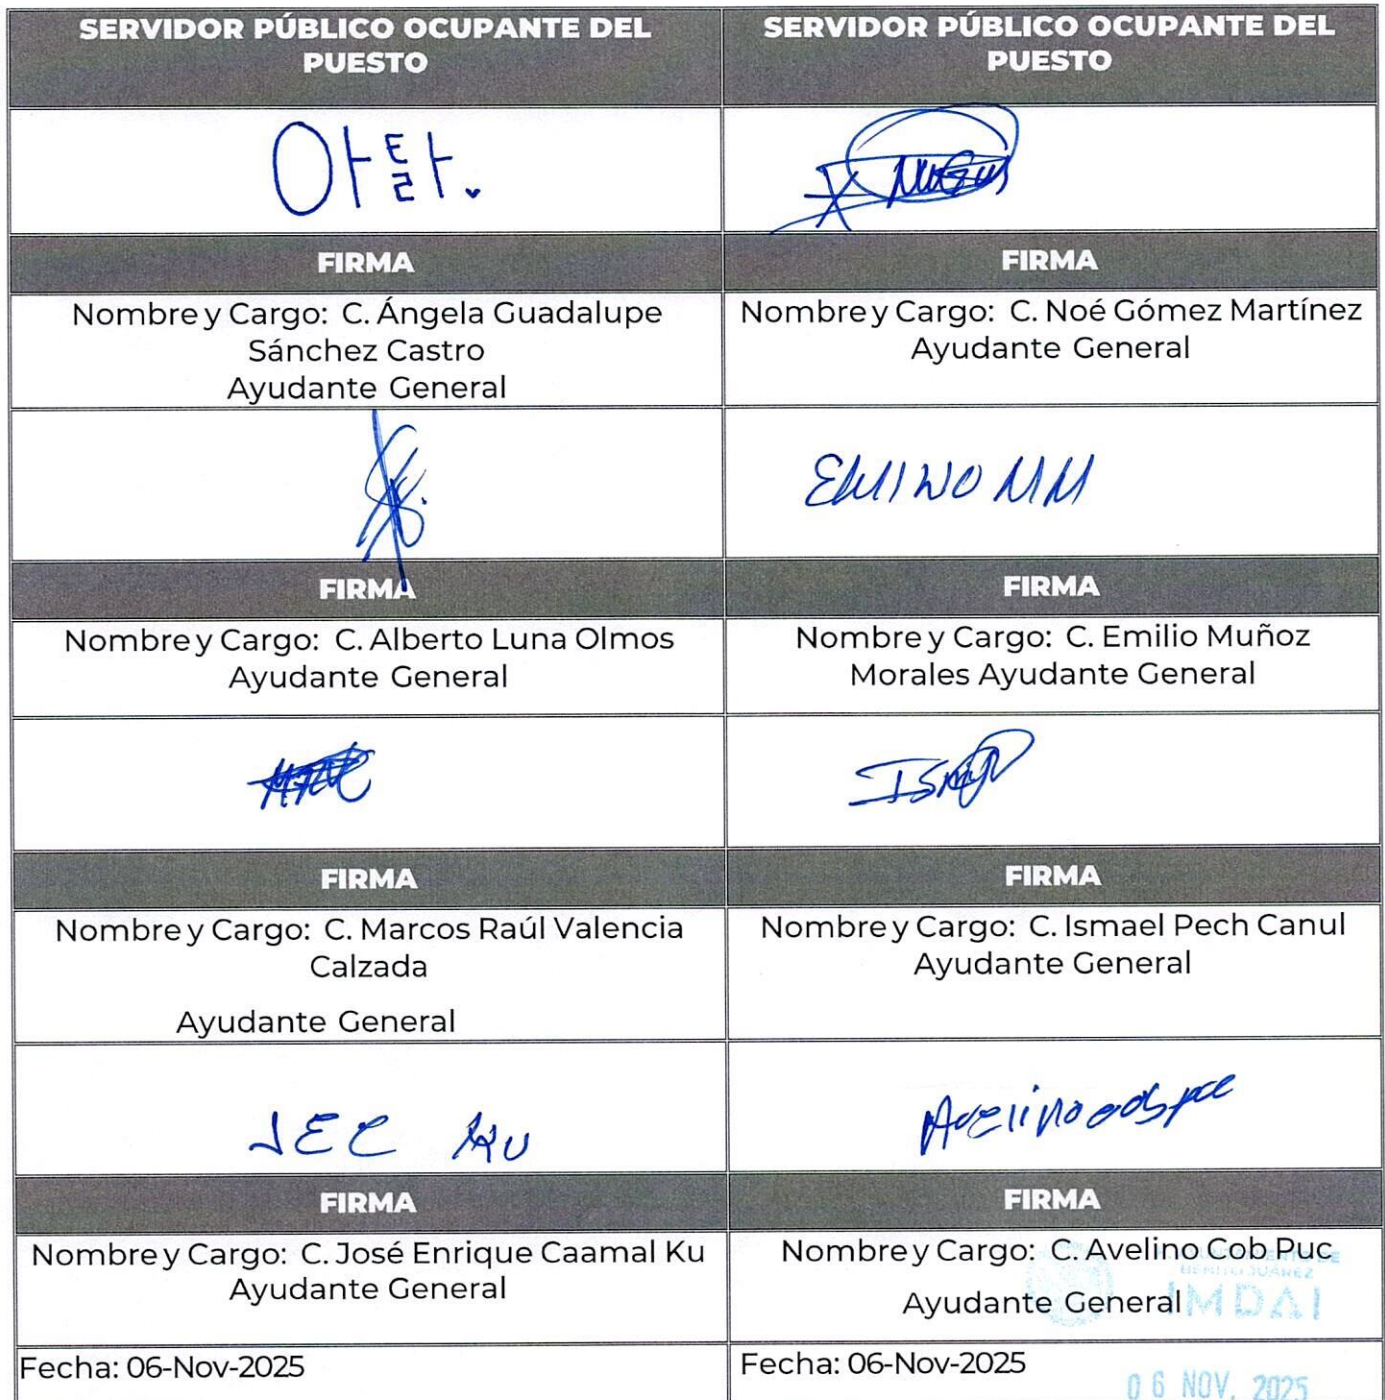 SERVIDOR PÚBLICO OCUPANTE DEL
PUESTO
SERVIDOR PÚBLICO OCUPANTE DEL
PUESTO
아탈.
FIRMA
FIRMA
Nombre y Cargo: C. Ángela Guadalupe
Sánchez Castro
Ayudante General
Nombre y Cargo: C. Noé Gómez Martínez
Ayudante General
EMILIO MM
FIRMA
FIRMA
Nombre y Cargo: C. Alberto Luna Olmos
Ayudante General
Nombre y Cargo: C. Emilio Muñoz
Morales Ayudante General
FIRMA
FIRMA
Nombre y Cargo: C. Marcos Raúl Valencia
Calzada
Ayudante General
Nombre y Cargo: C. Ismael Pech Canul
Ayudante General
JEC KU
Avelino cob puc
FIRMA
FIRMA
Nombre y Cargo: C. José Enrique Caamal Ku
Ayudante General
Nombre y Cargo: C. Avelino Cob Puc
Ayudante General
BENITO JUÁREZ
IMDAI
Fecha: 06-Nov-2025
Fecha: 06-Nov-2025
06 NOV. 2025